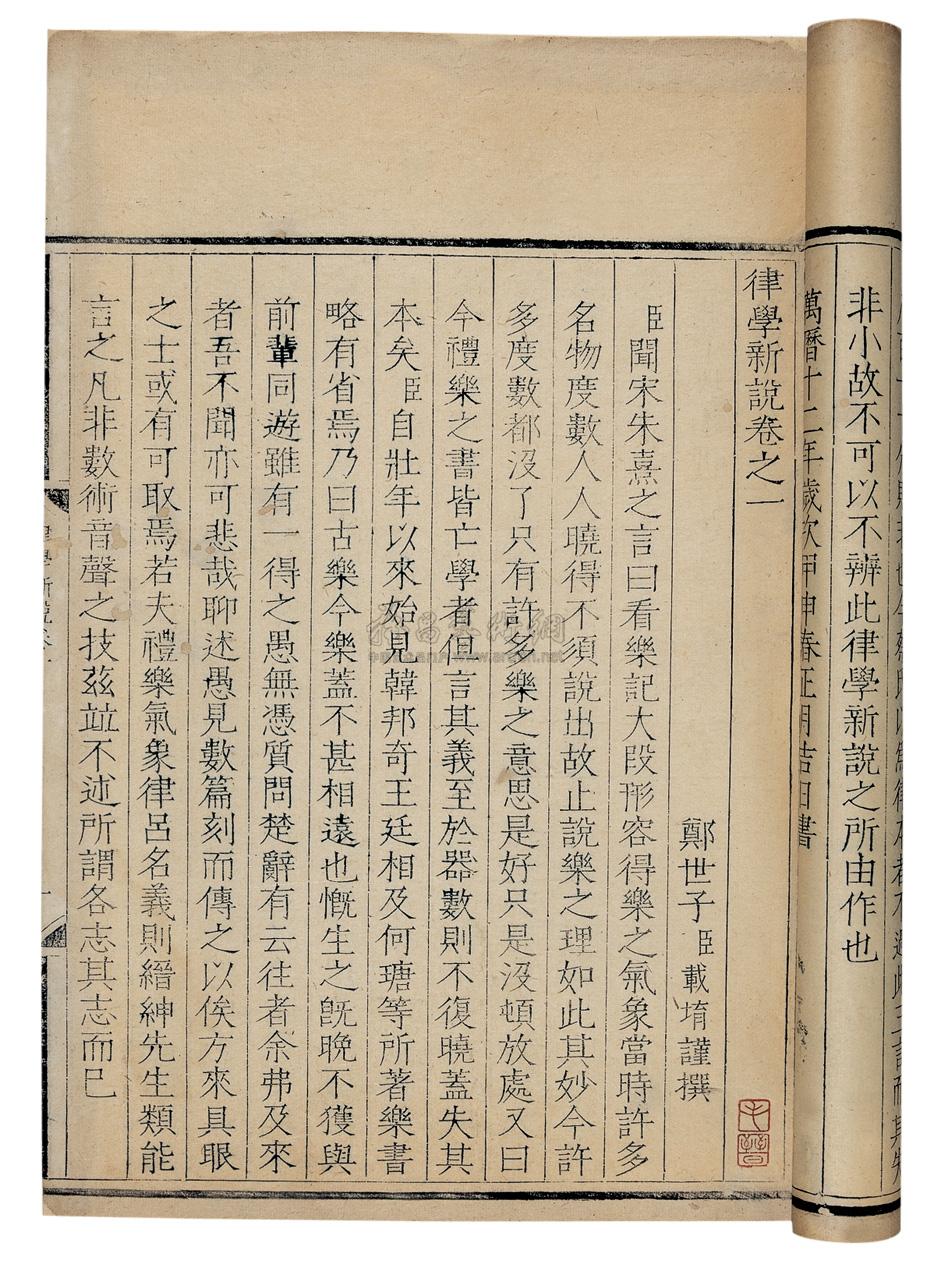 非小故不可以不辨此律學新說之所由作也
萬曆十二年歲次甲申春正月吉日書
律學新說卷之一
鄭世子臣載堉謹撰
臣聞宋朱熹之言曰看樂記大段形容得樂之氣象當時許多
名物度數人人曉得不須說出故止說樂之理如此其妙今許
多度數都沒了只有許多樂之意思是好只是沒頓放處又曰
今禮樂之書皆亡學者但言其義至於器數則不復曉蓋失其
本矣臣自壯年以來始見韓邦奇王廷相及何瑭等所著樂書
略有省焉乃曰古樂今樂蓋不甚相遠也慨生之旣晚不獲與
前輩同遊雖有一得之愚無憑質問楚辭有云往者余弗及來
者吾不聞亦可悲哉聊述愚見數篇刻而傳之以俟方來具眼
之士或有可取焉若夫禮樂氣象律呂名義則縉紳先生類能
言之凡非數術音聲之技茲竝不述所謂各志其志而已
律學新說卷一
毛晉